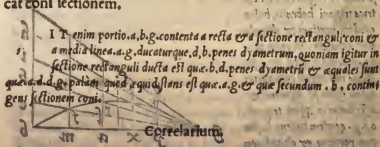 cat coni sectionem.
I T enim portio. a, b, g. contenta a recta & a sectione rectanguli coni &
a media linea. a. g. ducaturque. d, b. penes dyametrum, quoniam igitur in
sectione rectanguli ducta est quæ. b. d. penes dyametrū & æquales sunt
quæ. a. d. d. g. palam quod æquidistans est quæ. a. g. & quæ secundum. b. contin
gens sectionem coni.
Correlarium.